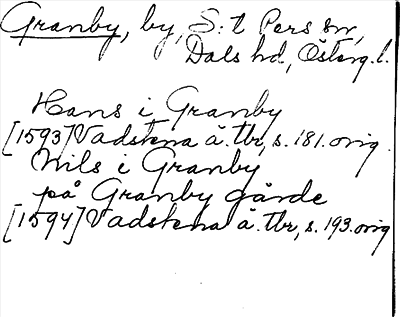 Granby, by, S:t Pers sn,
Dals hd, Österg. l.
Hans i Granby
[1593] Vadstena ä. tbr, s. 181. orig.
Nils i Granby
på Granby gärde
[1594] Vadstena ä. tbr, s. 193. orig